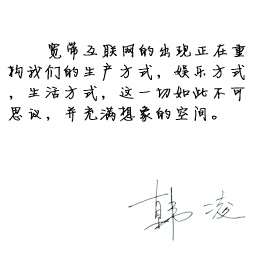 宽带互联网的出现正在重
构我们的生产方式，娱乐方式
，生活方式，这一切如此不可
思议，并充满想象的空间。
韩凌